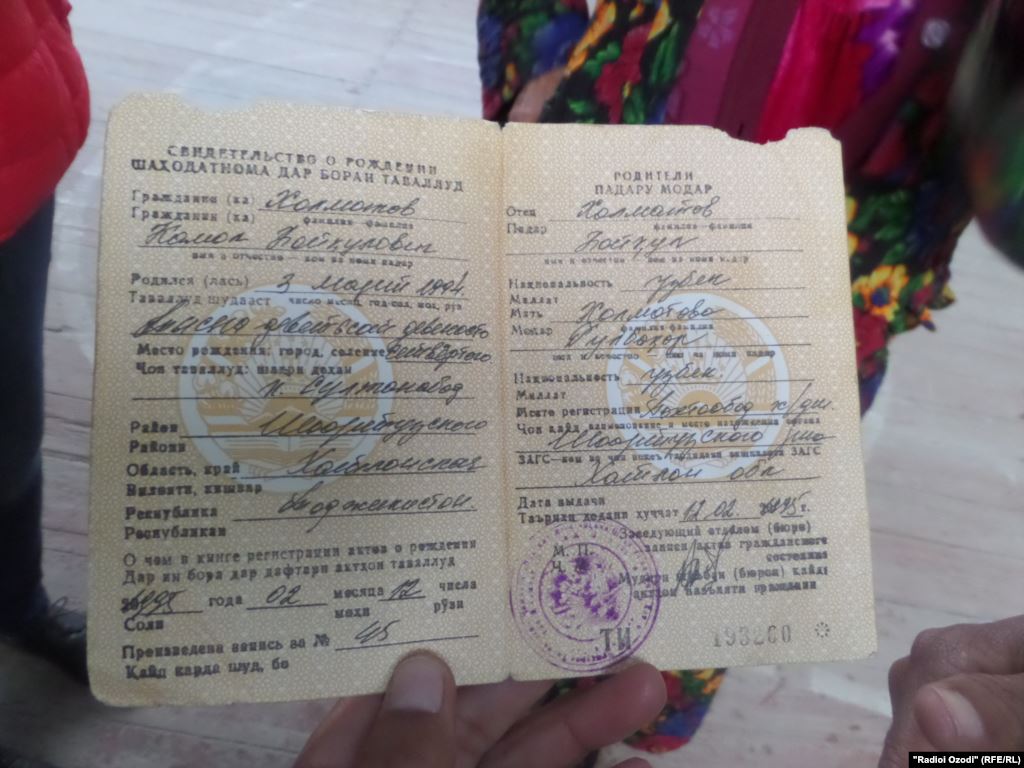 СВИДЕТЕЛЬСТВО О РОЖДЕНИИ
ШАҲОДАТНОМА ДАР БОРАИ ТАВАЛЛУД
Гражданин (ка) Холматов
Гражданин (ка) фамилия — фамилия
Камол Бойкулович
имя и отчество — ном ва номи падар
Родился (лась) 3 марти 1994
Таваллуд шудааст число месяц год сол, моҳ, рӯз
девятьсот девяносто
Место рождения: город, селение четвёртого
Ҷои таваллуд: шаҳри деҳаи
п. Султонобод
Район Шаартузского
Райони
Область, край Хатлонская
Вилояти, кишвар
Республика Таджикистон.
Республикаи
О чем в книге регистрации актов о рождении
Дар ин бора дар дафтари актҳои таваллуд
1995 года 02 месяца 12 числа
Соли моҳи рӯзи
Произведена запись за № 45
Қайд карда шуд, бо
РОДИТЕЛИ
ПАДАРУ МОДАР
Отец Холматов
Падар фамилия — фамилия
Бойкул
имя и отчество — ном ва номи падар
Национальность узбек
Миллат
Мать Холматова
Модар фамилия фамилия
Гулбахор
имя и отчество ном ва номи падар
Национальность узбек
Миллат
Место регистрации
Ҷои қайд наименование и место нахождения органа
Шаартузского р-на
ЗАГС — ном ва ҷои ЗАГС
Хатлон обл
Дата выдачи
Таърихи додани ҳуҷҷат 12 02 1995 г.
Заведующий отделом (бюро)
записи актов гражданского
состояния
М. П.
Ҷ. М.
Мудири шӯъбаи (бюрои) қайди
актҳои вазъияти граждани
ТИ 193260
"Radioi Ozodi" (RFE/RL)